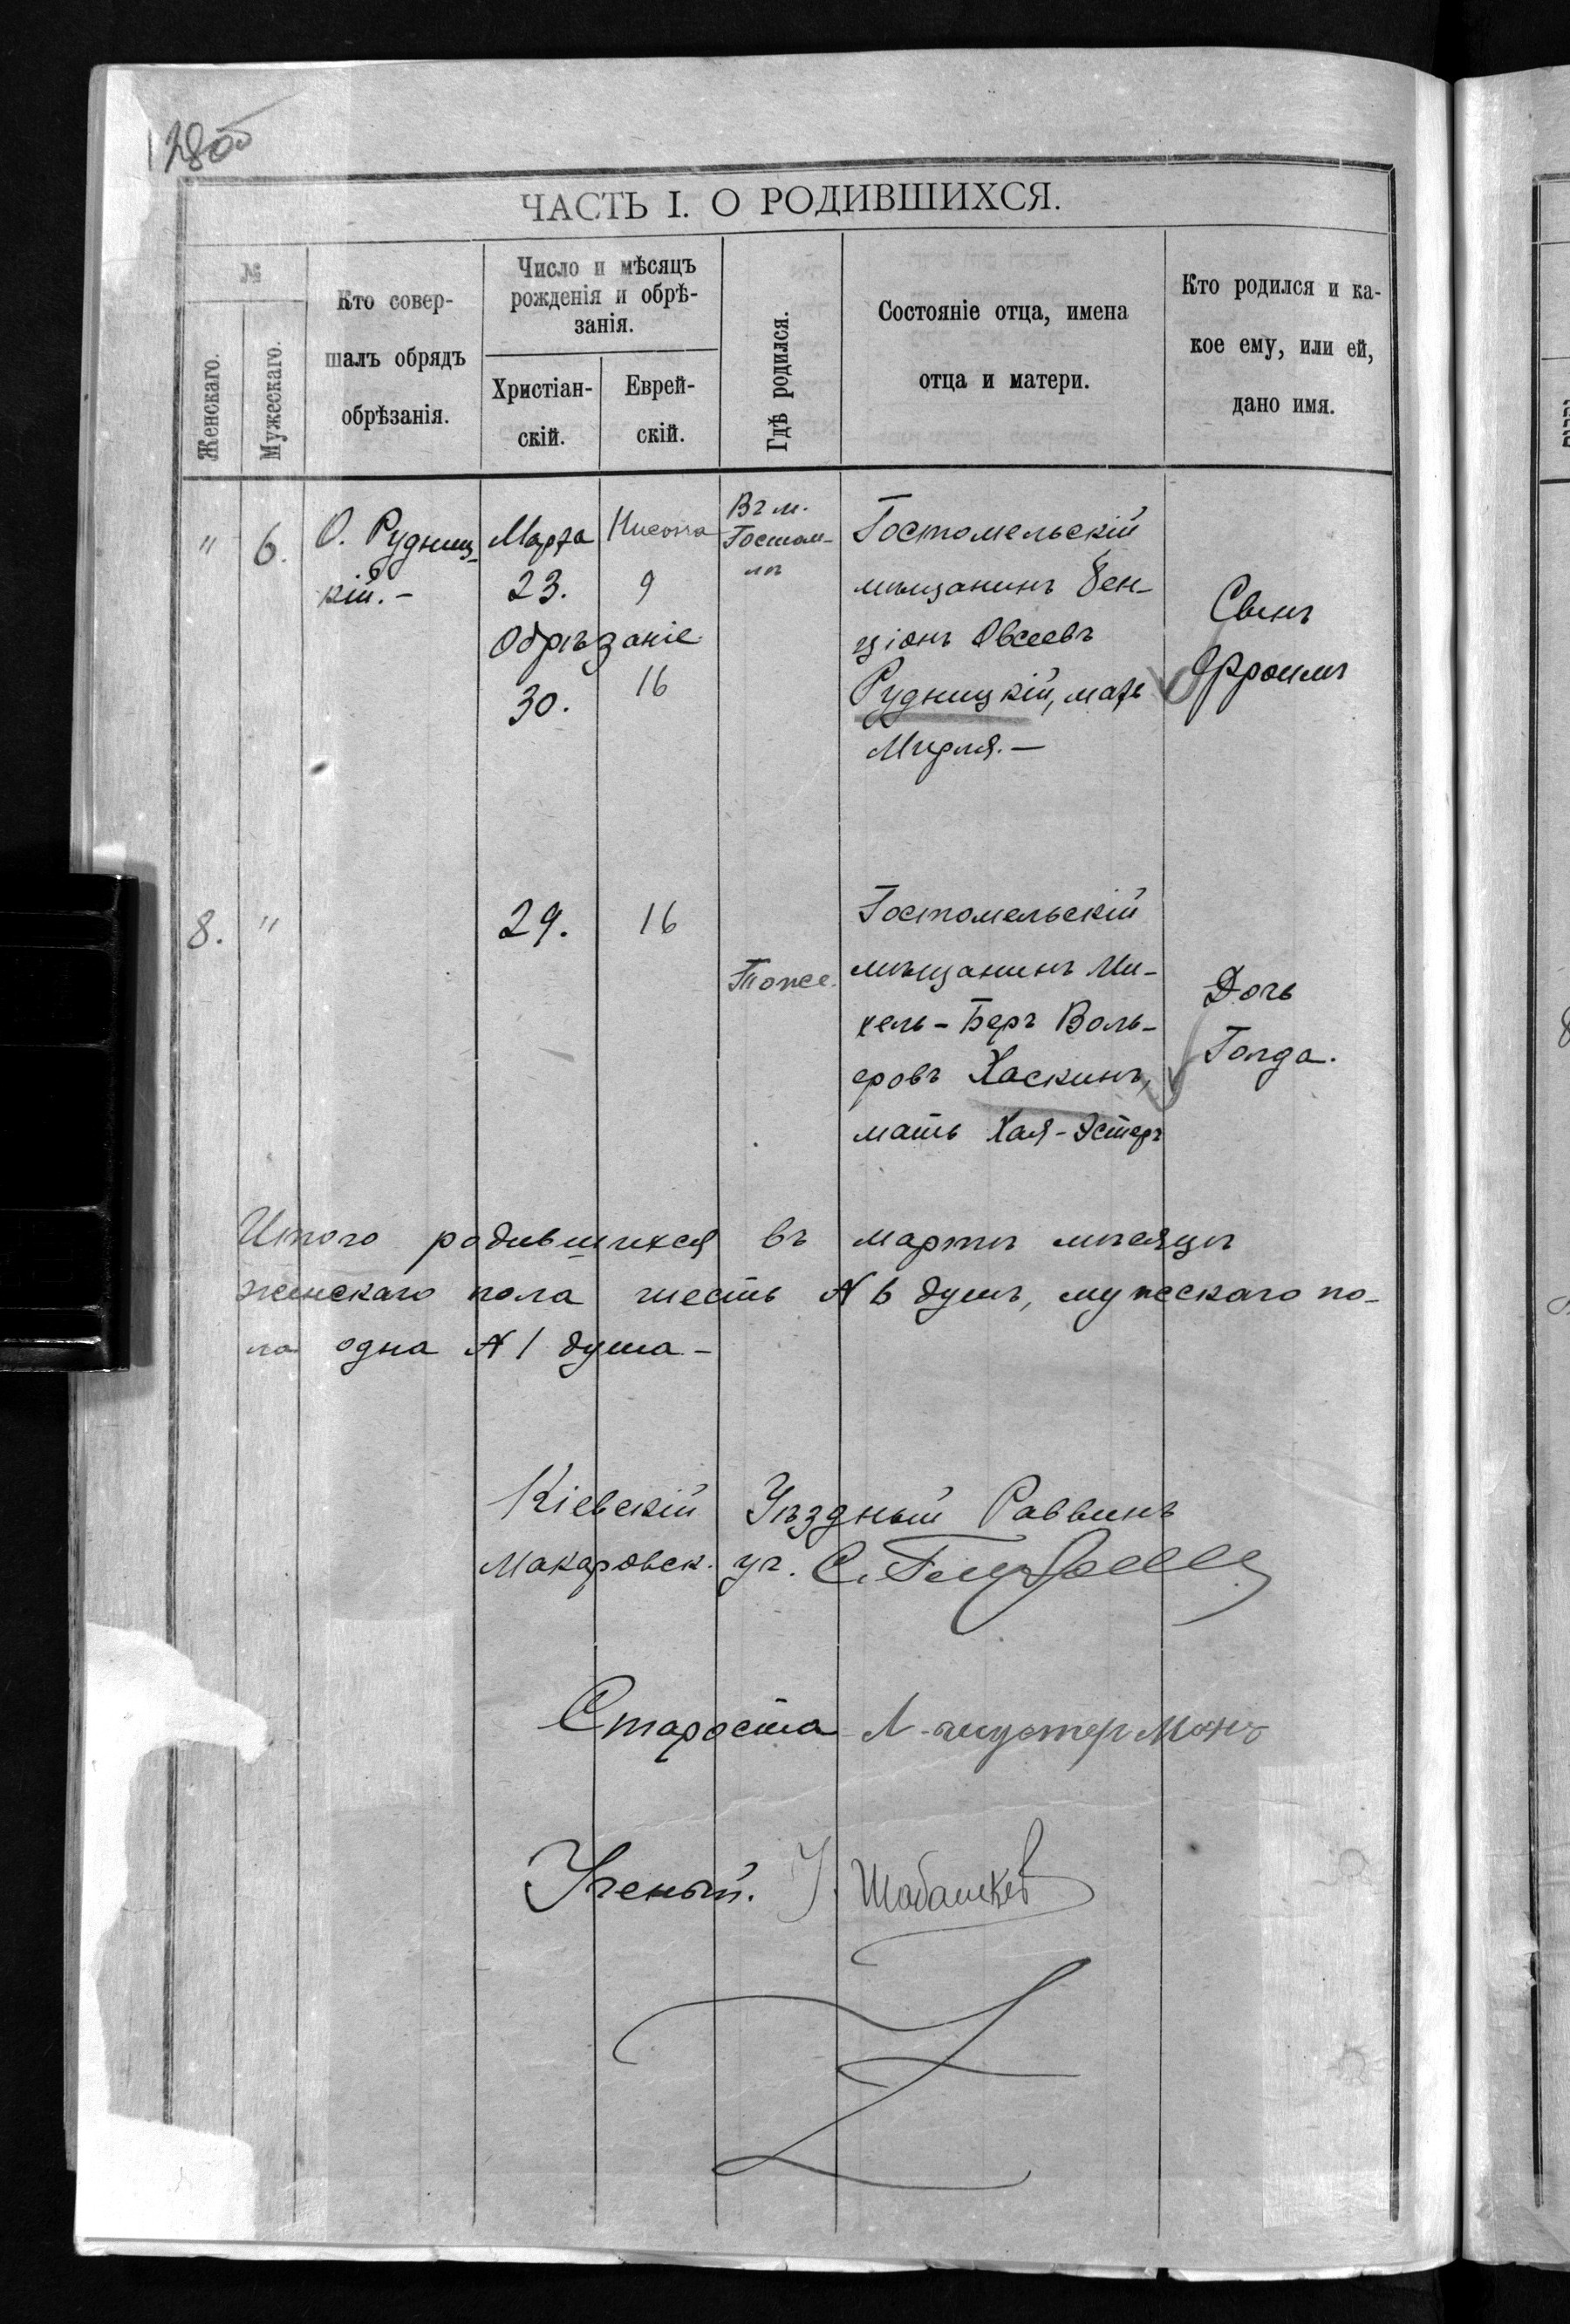 128об
ЧАСТЬ I. О РОДИВШИХСЯ.
№
Женскаго.
Мужескаго.
Кто совер-
шалъ обрядъ
обрѣзанія.
Число и мѣсяцъ
рожденія и обрѣ-
занія.
Христіан-
скій.
Еврей-
скій.
Гдѣ родился.
Состояніе отца, имена
отца и матери.
Кто родился и ка-
кое ему, или ей,
дано имя.
" 6.
О. Рудниц-
кій.-
Марта
23.
Нисона
9
Обрѣзаніе
30. 16
Въ м.
Гостом-
лѣ
Гостомельскій
мѣщанинъ Бен-
ціонъ Овсеевъ
Рудницкій, мать
Мирля.-
Сынъ
Фроимъ
8. "
29. 16
Тоже.
Гостомельскій
мѣщанинъ Ми-
хель-Беръ Воль-
фовъ Хаскинъ,
мать Хая-Эстеръ
Дочь
Голда.
Итого родившихся въ мартѣ мѣсяцѣ
женскаго пола шесть N 6 душъ, мужескаго по-
ла одна N 1 душа-
Кіевскій Уѣздный Раввинъ
Макаровск. уч. С.
Староста Л.
Ученый. Шабашкев